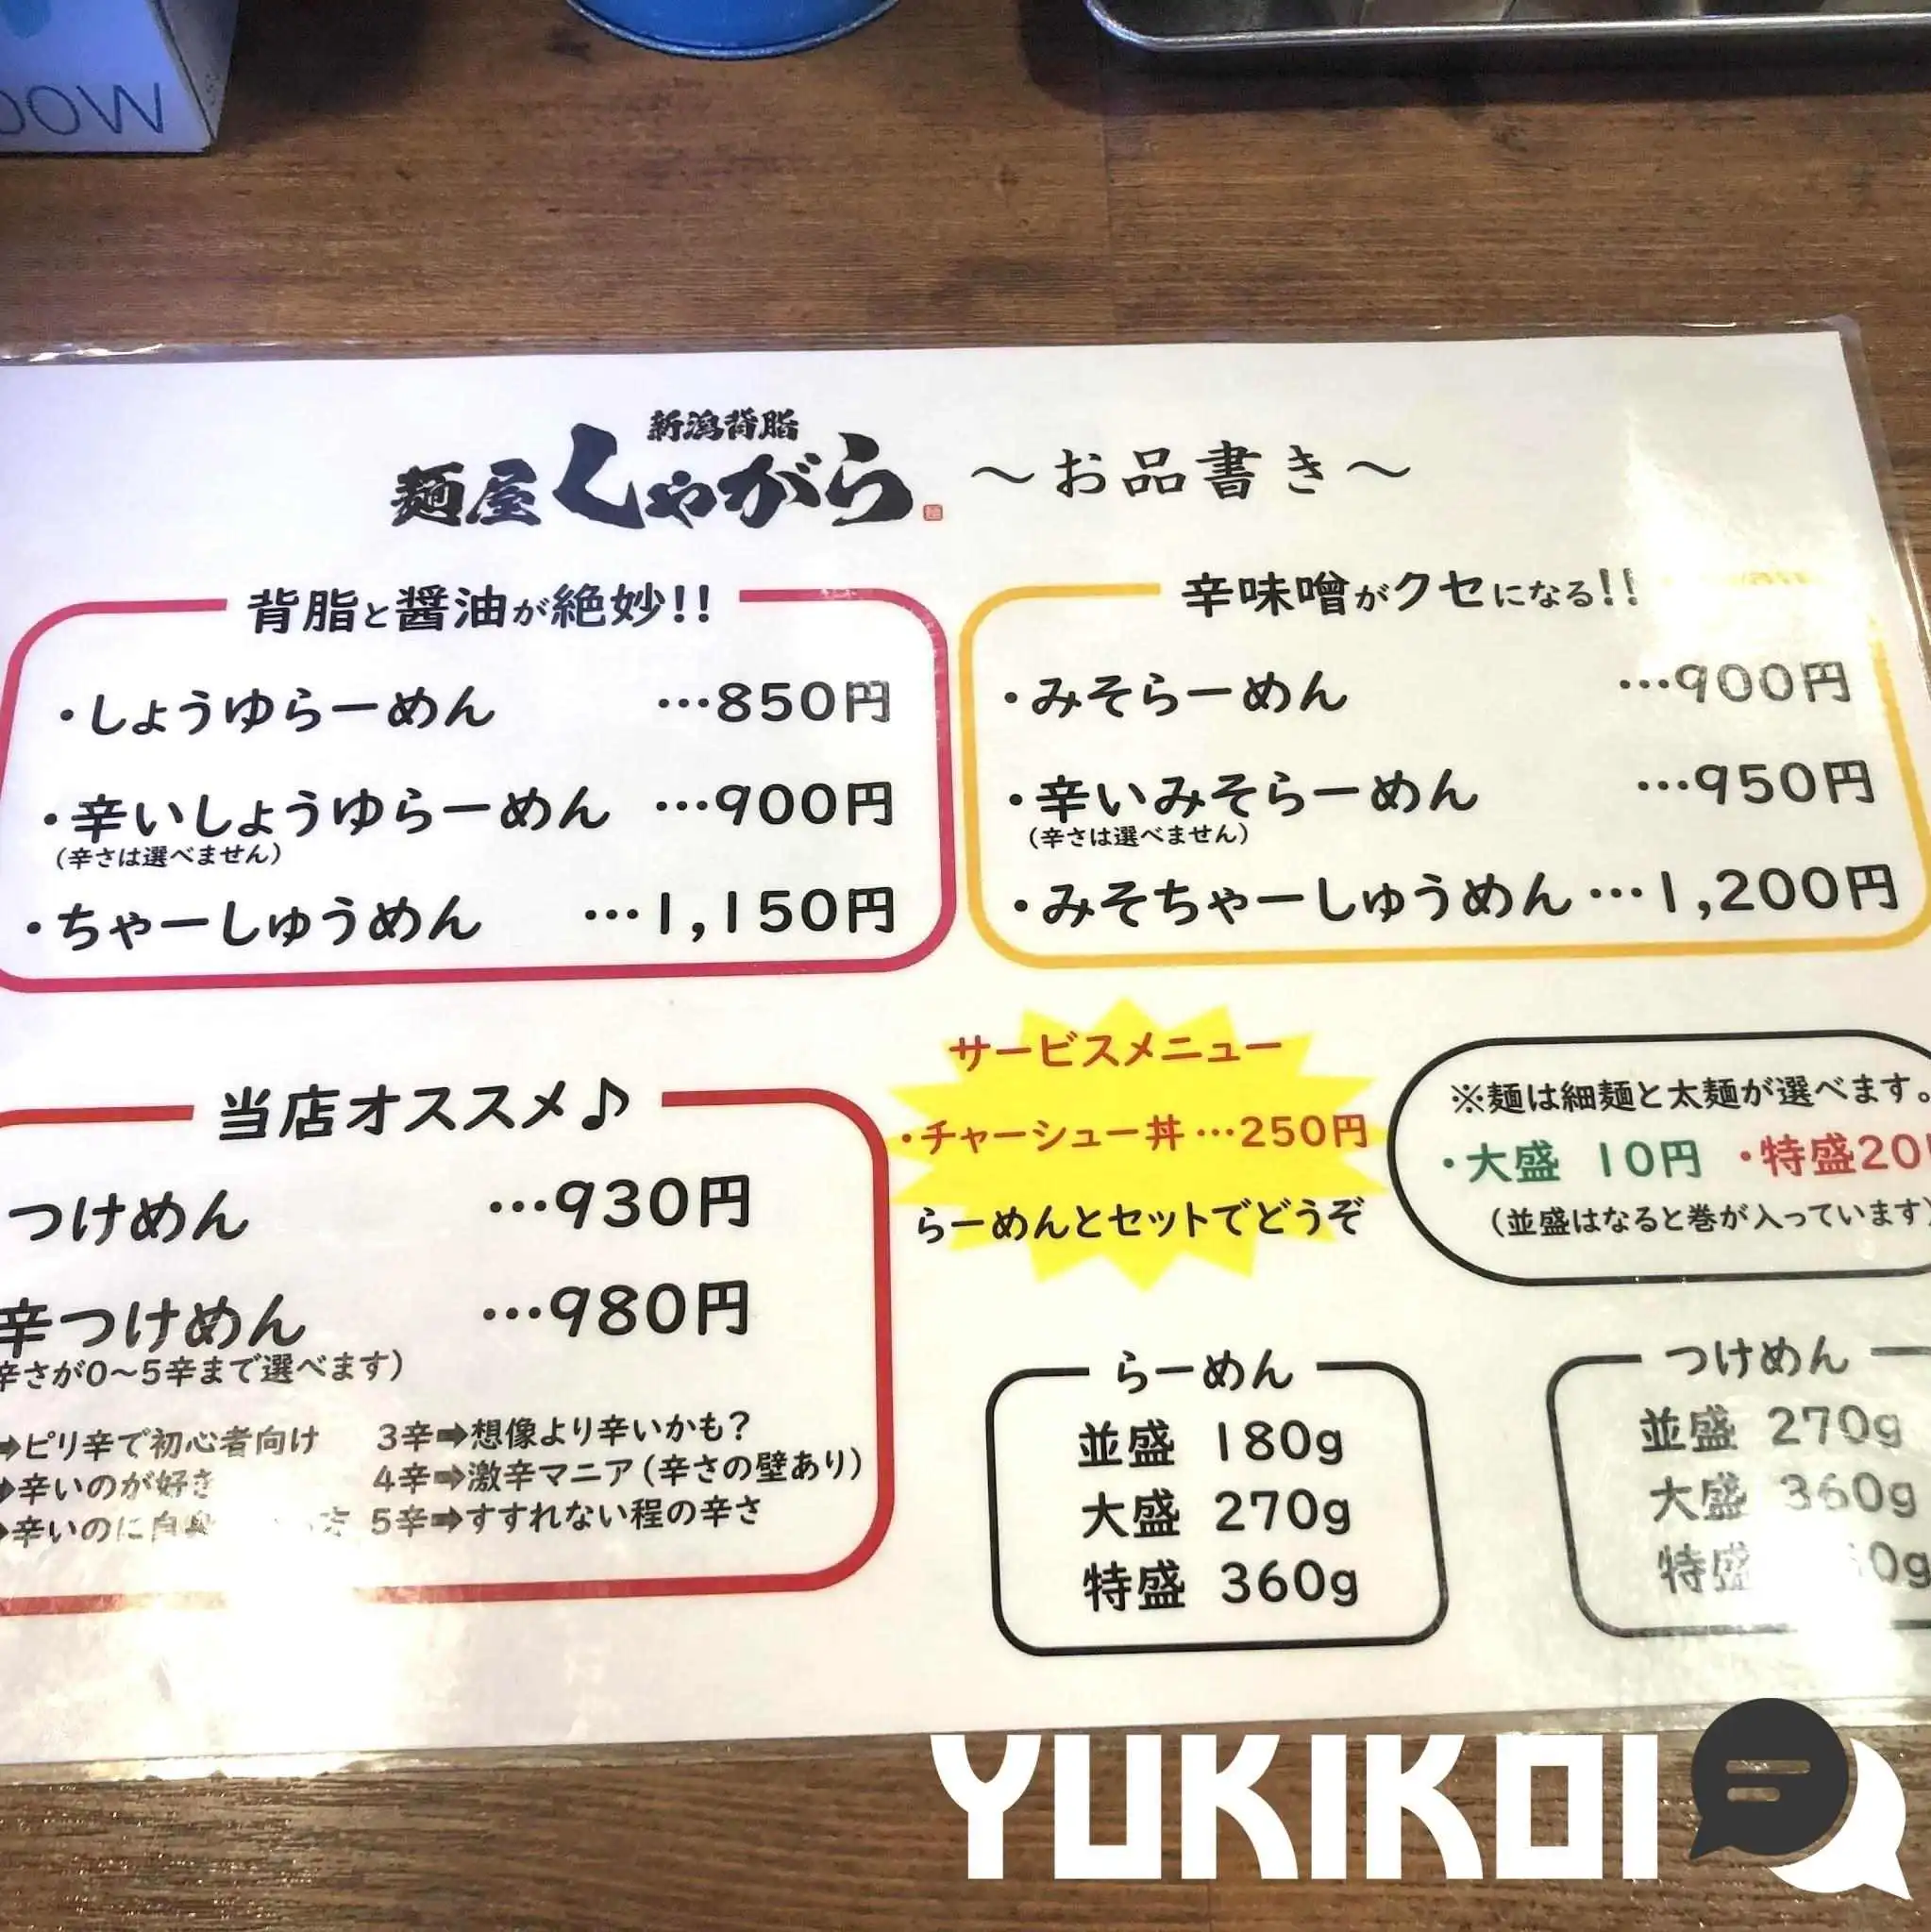 新潟背脂
麺屋しゃがら
～お品書き～
背脂と醤油が絶妙!!
・しょうゆらーめん …850円
・辛いしょうゆらーめん …900円
(辛さは選べません)
・ちゃーしゅうめん …1,150円
辛味噌がクセになる!!
・みそらーめん …900円
・辛いみそらーめん …950円
(辛さは選べません)
・みそちゃーしゅうめん…1,200円
当店オススメ♪
つけめん …930円
辛つけめん …980円
辛さが0～5辛まで選べます)
➡ピリ辛で初心者向け
➡辛いのが好き
➡辛いのに自身 方
3辛➡想像より辛いかも?
4辛➡激辛マニア(辛さの壁あり)
5辛➡すすれない程の辛さ
サービスメニュー
・チャーシュー丼…250円
らーめんとセットでどうぞ
※麺は細麺と太麺が選べます。
・大盛 10円 ・特盛20
(並盛はなると巻が入っています)
らーめん
並盛 180g
大盛 270g
特盛 360g
つけめん
並盛 270g
大盛 360g
特盛
YUKIKOI